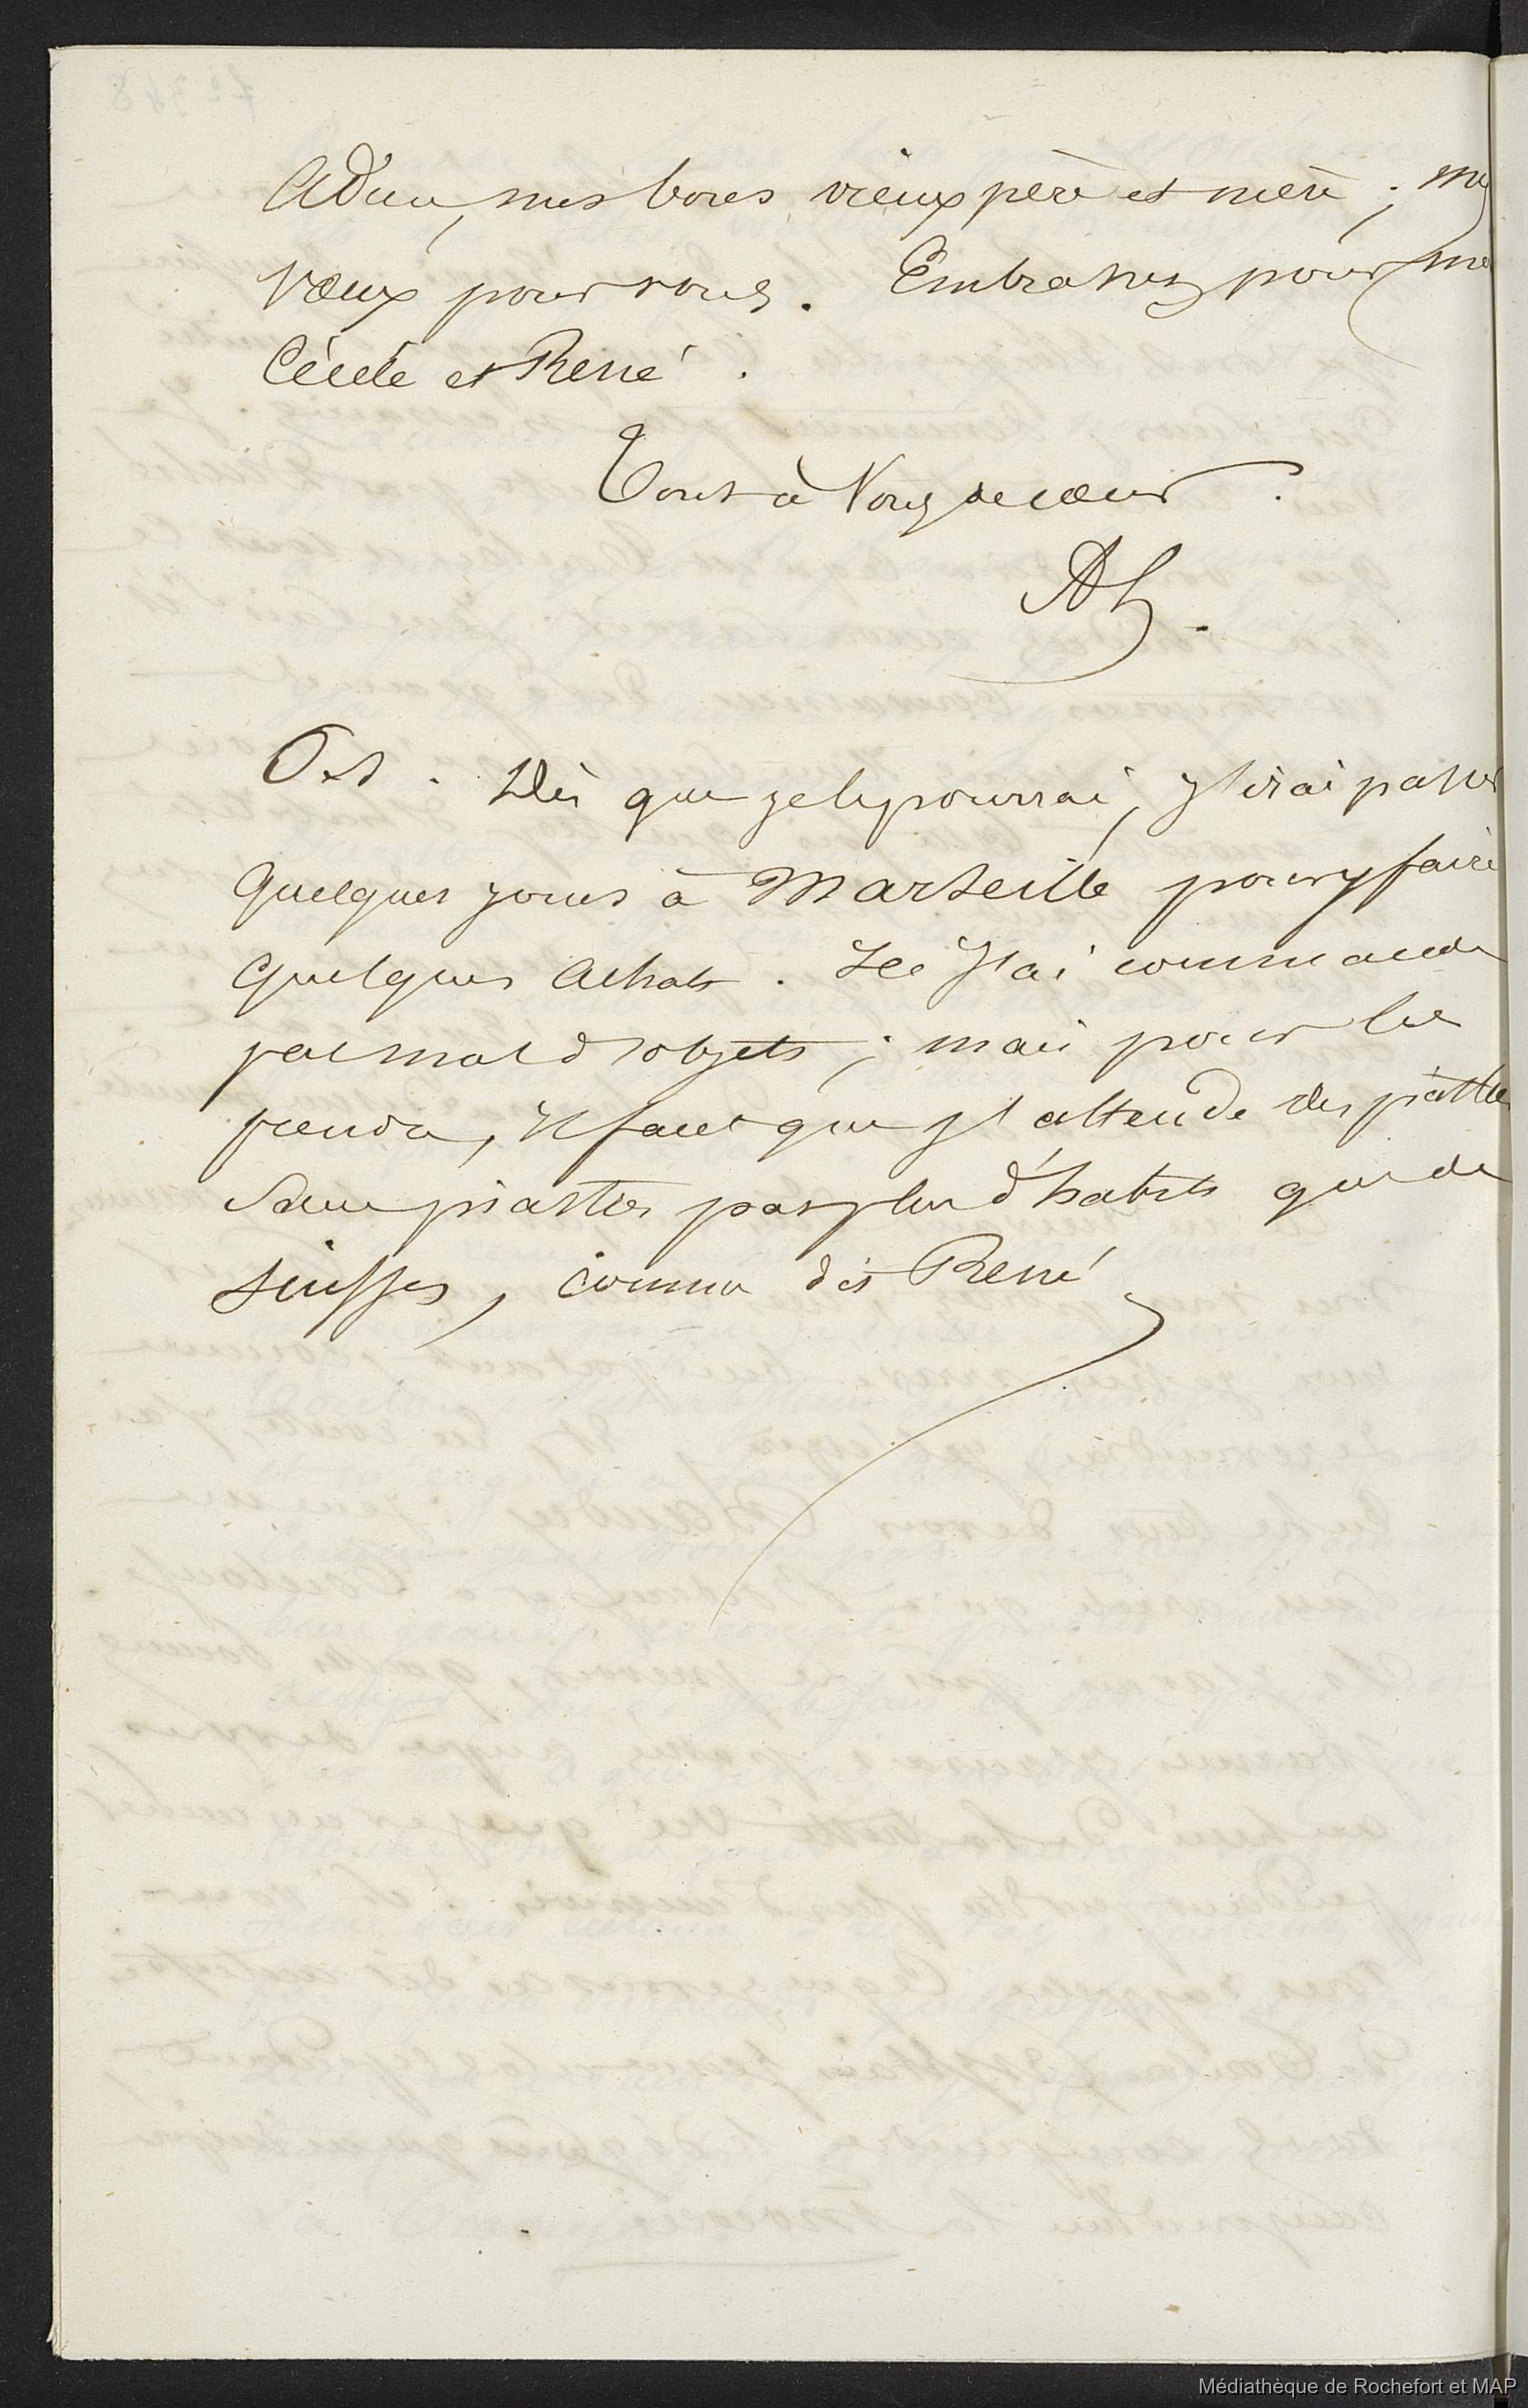 Adieu, mes bons vieux père et mère ; mes
vœux pour vous. Embrassez pour moi
Cécile et René.
Tout à Vous de cœur.
AL.
P.S. Dès que je le pourrai, j'irai passer
quelques jours à Marseille pour y faire
quelques achats. Ici j'ai commandé
pas mal d'objets ; mais pour les
prendre, il faut que j'attende des piastres
Sans piastres pas plus d'habits que de
suisses, comme dit René
Médiathèque de Rochefort et MAP